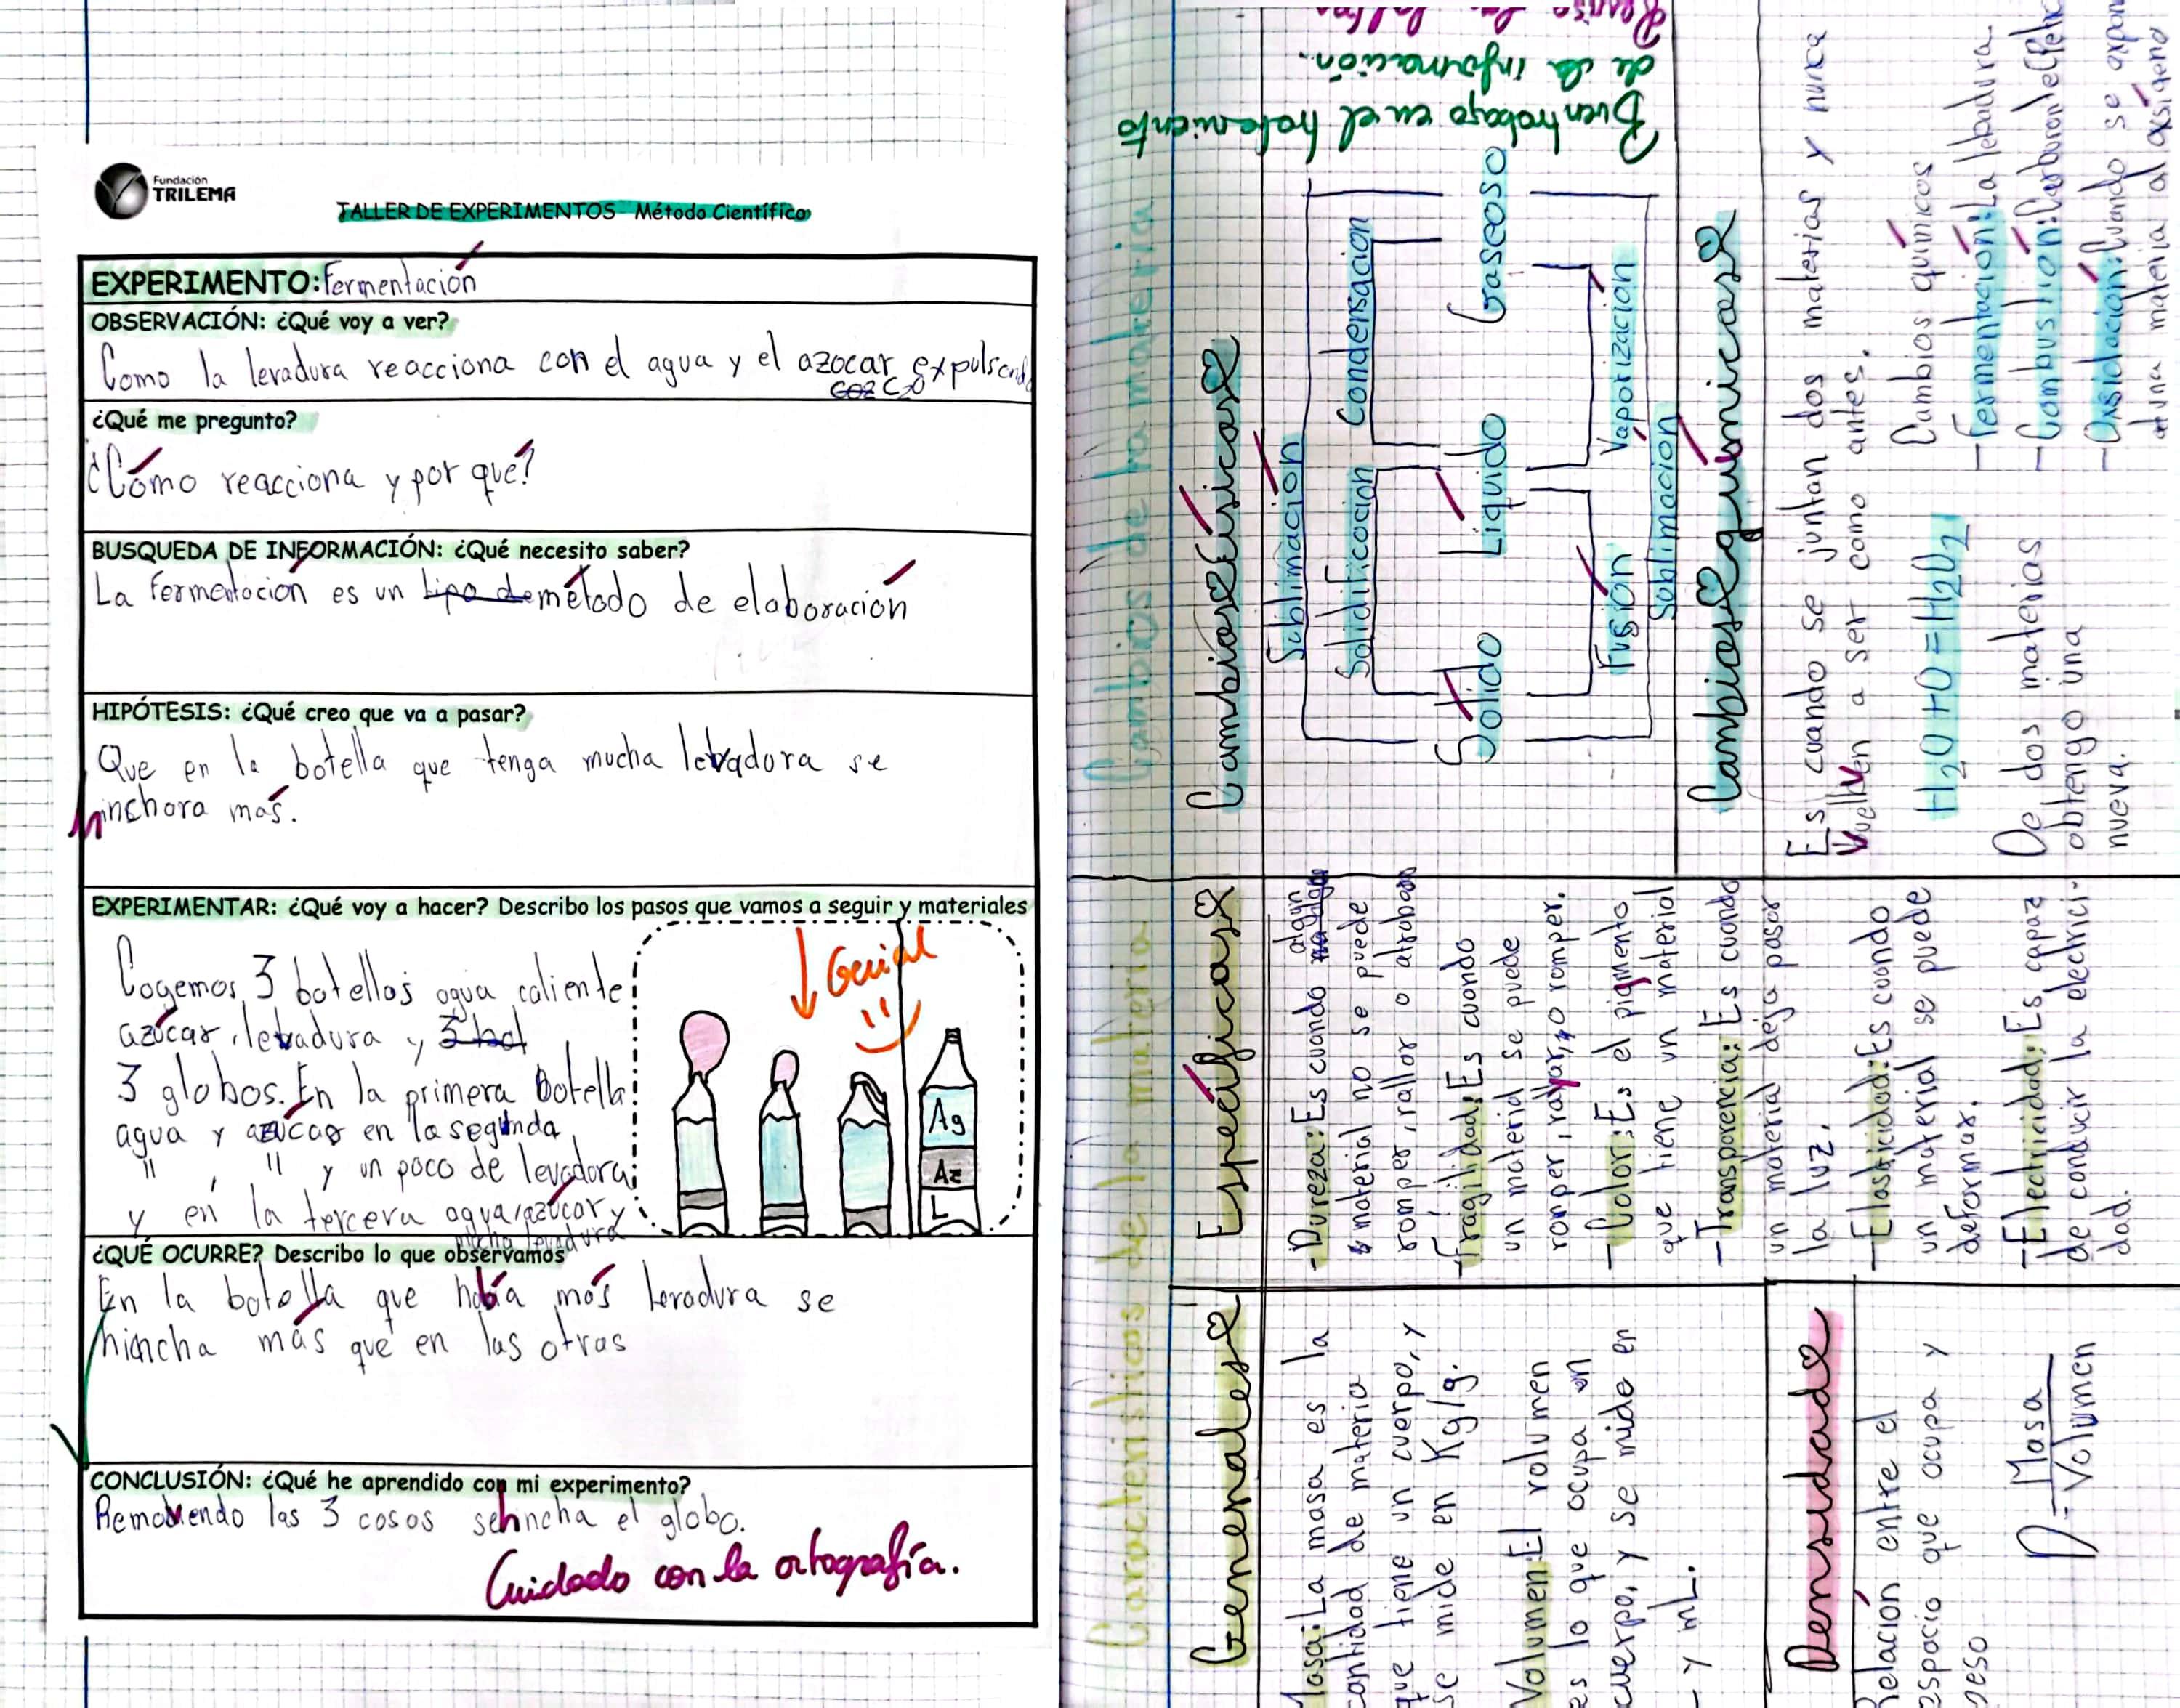 Fundación
TRILEMA
TALLER DE EXPERIMENTOS Método Científico
EXPERIMENTO: Fermentación
OBSERVACIÓN: ¿Qué voy a ver?
Como la levadura reacciona con el agua y el azocar expulsando
¿Qué me pregunto?
¿Cómo reacciona y por qué?
BUSQUEDA DE INFORMACIÓN: ¿Qué necesito saber?
La fermentación es un tipo de método de elaboración
HIPÓTESIS: ¿Qué creo que va a pasar?
Que en la botella que tenga mucha levadora se
hinchara más.
EXPERIMENTAR: ¿Qué voy a hacer? Describo los pasos que vamos a seguir y materiales
Cogemos 3 botellas agua caliente
azúcar, levadura y 3 bot
3 globos. En la primera botella
agua y azúcar en la segunda
" , " y un poco de levadora
y en la tercera agua, azúcar y
mucha levadura
Genial
Ag
Az
L
¿QUÉ OCURRE? Describo lo que observamos
En la botella que había más levadura se
hincha más que en las otras
CONCLUSIÓN: ¿Qué he aprendido con mi experimento?
Removiendo las 3 cosas se hincha el globo.
Cuidado con la ortografía.
Características de la materia
Generales
Masa: La masa es la
cantidad de materia
que tiene un cuerpo, y
se mide en Kg/g.
Volumen: El volumen
es lo que ocupa un
cuerpo, y se mide en
L y mL.
Densidad
Relación entre el
espacio que ocupa y
peso
D = Masa
Volumen
Específicas
-Dureza: Es cuando algun
material no se puede
romper, rallar o atrabar
-Fragilidad: Es cuando
un material se puede
romper, rayar, o romper.
-Color: Es el pigmento
que tiene un material
-Transparencia: Es cuando
un material deja pasar
la luz.
-Elasticidad: Es cuando
un material se puede
deformar.
-Electricidad: Es capaz
de conducir la electrici-
dad.
Cambios de la materia
Cambios físicos
Sublimación
Solidificacion Condensacion
Sólido Líquido Gaseoso
Fusión Vaporización
Soblimacion
Cambios químicos
Es cuando se juntan dos materias y nunca
vuelven a ser como antes.
H2O+O=H2O2
De dos materias
obtengo una
nueva.
Cambios químicos
-Fermentación: La lebadura
-Combustión: Carburon del petr
-Oxsidación: Cuando se expon
una materia al oxsígeno
Buen trabajo en el tratamiento
de la información.
Revisa las faltas